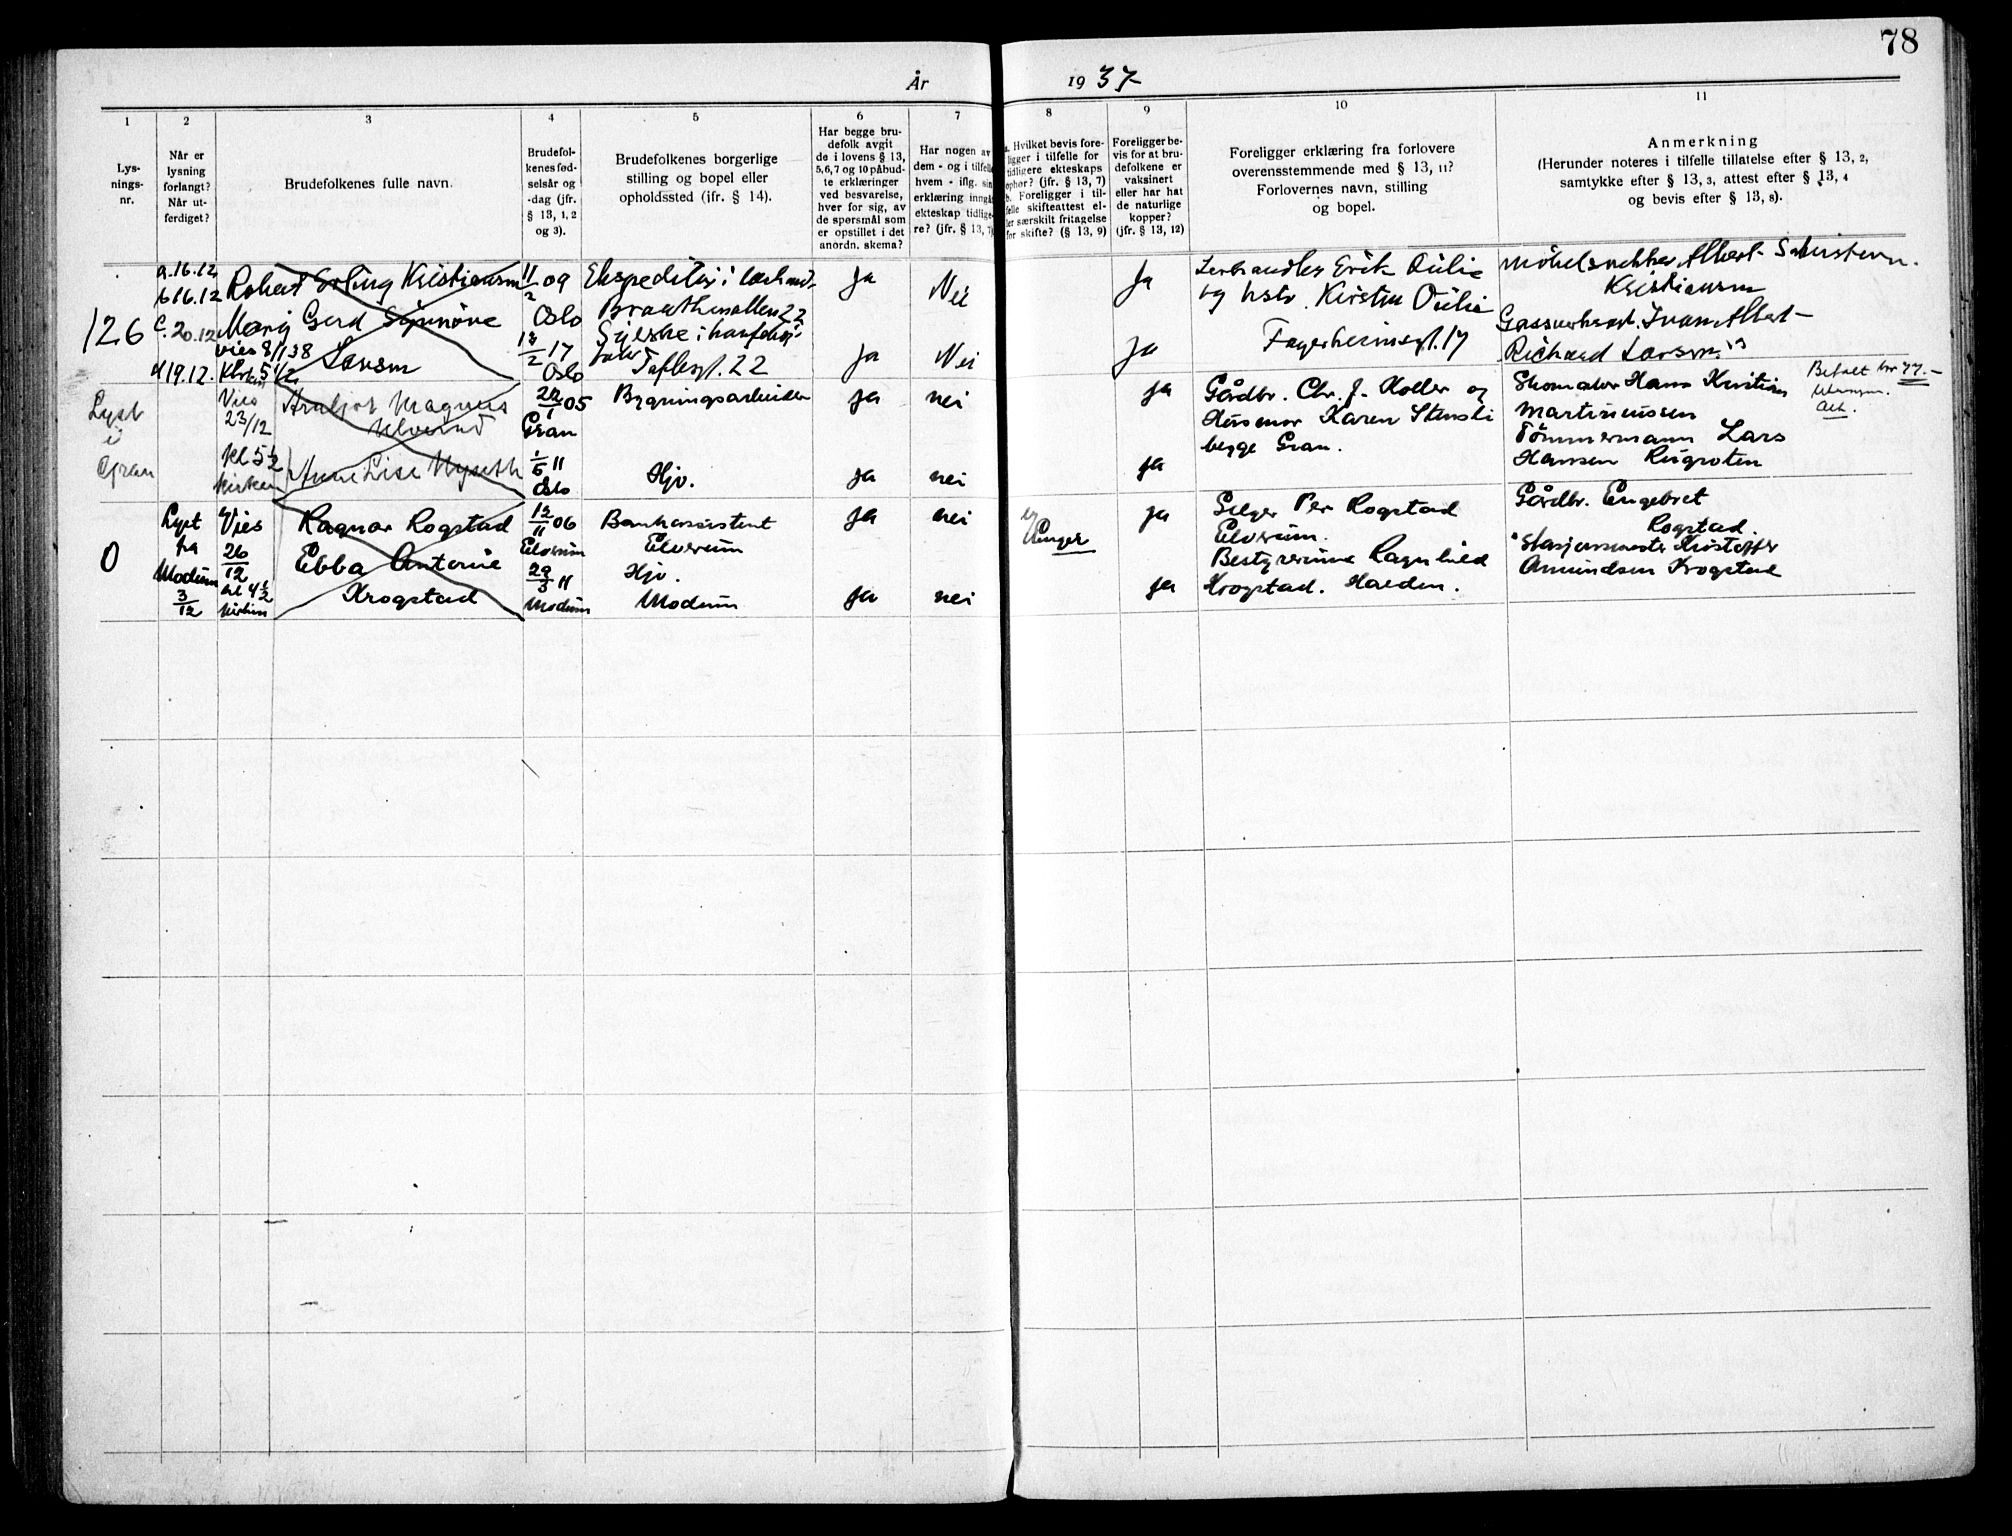 78
År 1937
1
Lys-
nings-
nr.
2
Når er
lysning
forlangt?
Når ut-
ferdiget?
3
Brudefolkenes fulle navn.
4
Brudefol-
kenes fød-
selsår og
-dag (jfr.
§ 13, 1, 2
og 3).
5
Brudefolkenes borgerlige
stilling og bopel eller
opholdssted (jfr. § 14).
6
Har begge bru-
defolk avgit
de i lovens § 13,
5, 6, 7 og 10 påbud-
te erklæringer
ved besvarelse,
hver for sig, av
de spørsmål som
er opstillet i det
anordn. skema?
7
Har nogen av
dem - og i tilfelle
hvem - iflg. sin
erklæring inngått
ekteskap tidlige-
re? (jfr. § 13, 7)
8
a. Hvilket bevis fore-
ligger i tilfelle for
tidligere ekteskaps
ophør? (jfr. § 13, 7)
b. Foreligger i til-
felle skifteattest el-
ler særskilt fritagelse
for skifte? (§ 13, 9)
9
Foreligger be-
vis for at bru-
defolkene er
vaksinert
eller har hat
de naturlige
kopper?
(jfr. § 13, 12)
10
Foreligger erklæring fra forlovere
overensstemmende med § 13, 11?
Forlovernes navn, stilling
og bopel.
11
Anmerkning
(Herunder noteres i tilfelle tillatelse efter § 13, 2,
samtykke efter § 13, 3, attest efter § 13, 4
og bevis efter § 13, 8).
126
a. 16.12
b 16.12
c. 20.12
d 19.12.
Vies 8/1 38
Kl. 5 1/2
Robert Erling Kristiansen
Marij Gerd Synnøve
Larsen
11/2 09
Oslo
17
Oslo
Ekspeditør i
Braathenalleen 22
Syerske i
22
Ja
Nei
Ja
Nei
Ja
Ja
Erik Dulie
og Kirsten Dulie
Fagerheimsgt. 17
Møbelsnekker Albert
Kristiansen
Ivan Albert
Richard Larsen
Lyst
i
Gran
Vies
23/12
kl 5 1/2
kirken
Magnus
Ulverud
Anne Lise Nyseth
22/1 05
Gran
1/5 11
Oslo
Bygningsarbeider
Hjv.
ja
nei
ja
nei
ja
ja
Gårdbr. Chr. J. Koller og
Husmor Karen Stensli
begge Gran.
Skomaker Hans Kristian
Martinussen
Tømmermann Lars
Hansen Rugroten
Betalt kr 77.-
0
Lyst
fra
Modum
3/12
Vies
26/12
kl 4 1/2
kirken
Ragnar Rogstad
Ebba Antonie
Krogstad
12/11 06
Elverum
29/3 11
Modum
Bankassistent
Elverum
Hjv.
Modum
ja
nei
ja
nei
Penger
ja
ja
Selger Per Rogstad
Elverum.
Bestyrerinne Ragnhild
Krogstad. Halden.
Gårdbr. Engebret
Rogstad.
Stasjonsmester Kristoffer
Amundsen Krogstad